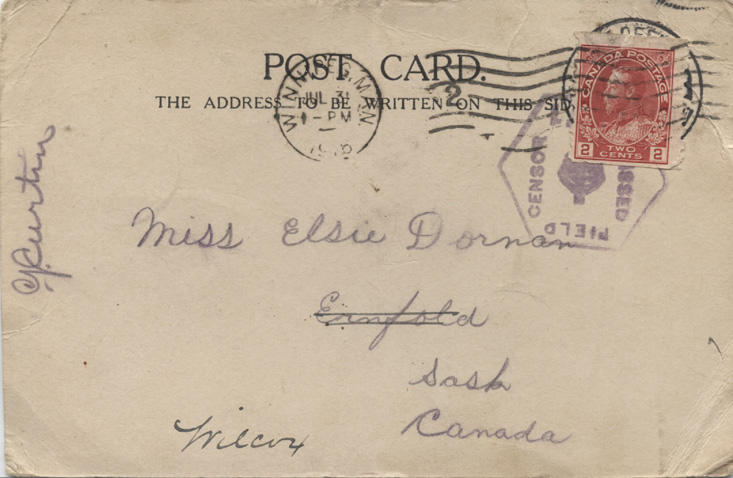 POST CARD.
THE ADDRESS TO BE WRITTEN ON THIS SID
WINNIPEG, MAN.
JUL 31
1 - PM
CANADA POSTAGE
2 TWO CENTS 2
CENSOR
FIELD
Miss Elsie Dornan
Ernfold
Sask
Canada
Wilcox